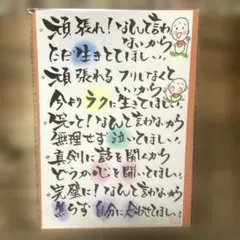 頑張れ!なんて言わ
ないから
ただ生きとてほしい。
頑張れるフリしなくて
いいから
今よりラクに生きてほしい。
笑って!なんて言わないから
無理せず泣いてほしい。
真剣に話を聞くから
どうか心を開いてほしい。
完璧に!なんて言わないから
焦らず自分に合わせてほしい。